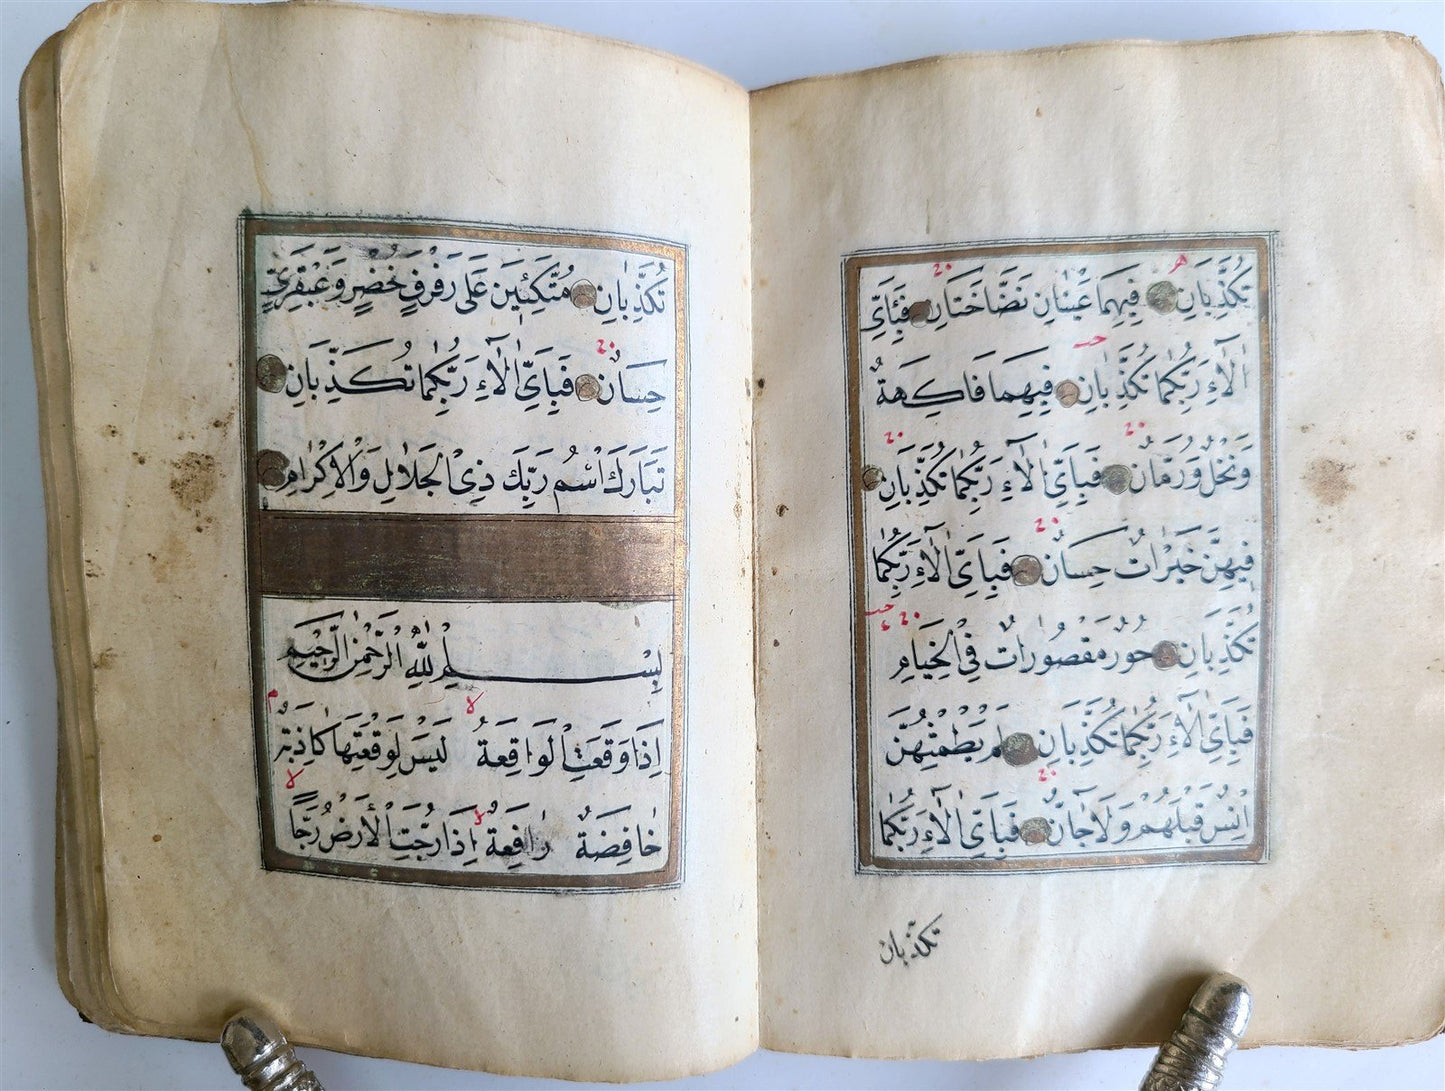 تُكَذِّبَانِ فِيهِمَا عَيْنَانِ نَضَّاخَتَانِ فَبِأَيِّ
اٰلَآءِ رَبِّكُمَا تُكَذِّبَانِ فِيهِمَا فَاكِهَةٌ
وَنَخْلٌ وَرُمَّانٌ فَبِأَيِّ اٰلَآءِ رَبِّكُمَا تُكَذِّبَانِ
فِيهِنَّ خَيْرَاتٌ حِسَانٌ فَبِأَيِّ اٰلَآءِ رَبِّكُمَا
تُكَذِّبَانِ حُورٌ مَقْصُورَاتٌ فِي الْخِيَامِ
فَبِأَيِّ اٰلَآءِ رَبِّكُمَا تُكَذِّبَانِ لَمْ يَطْمِثْهُنَّ
اِنْسٌ قَبْلَهُمْ وَلَا جَانٌّ فَبِأَيِّ اٰلَآءِ رَبِّكُمَا
تكذبان
تُكَذِّبَانِ مُتَّكِئِينَ عَلَى رَفْرَفٍ خُضْرٍ وَعَبْقَرِيٍّ
حِسَانٍ فَبِأَيِّ اٰلَآءِ رَبِّكُمَا تُكَذِّبَانِ
تَبَارَكَ اسْمُ رَبِّكَ ذِي الْجَلَالِ وَالْاِكْرَامِ
بِسْمِ اللّٰهِ الرَّحْمٰنِ الرَّحِيمِ
اِذَا وَقَعَتِ الْوَاقِعَةُ لَيْسَ لِوَقْعَتِهَا كَاذِبَةٌ
خَافِضَةٌ رَافِعَةٌ اِذَا رُجَّتِ الْاَرْضُ رَجًّا